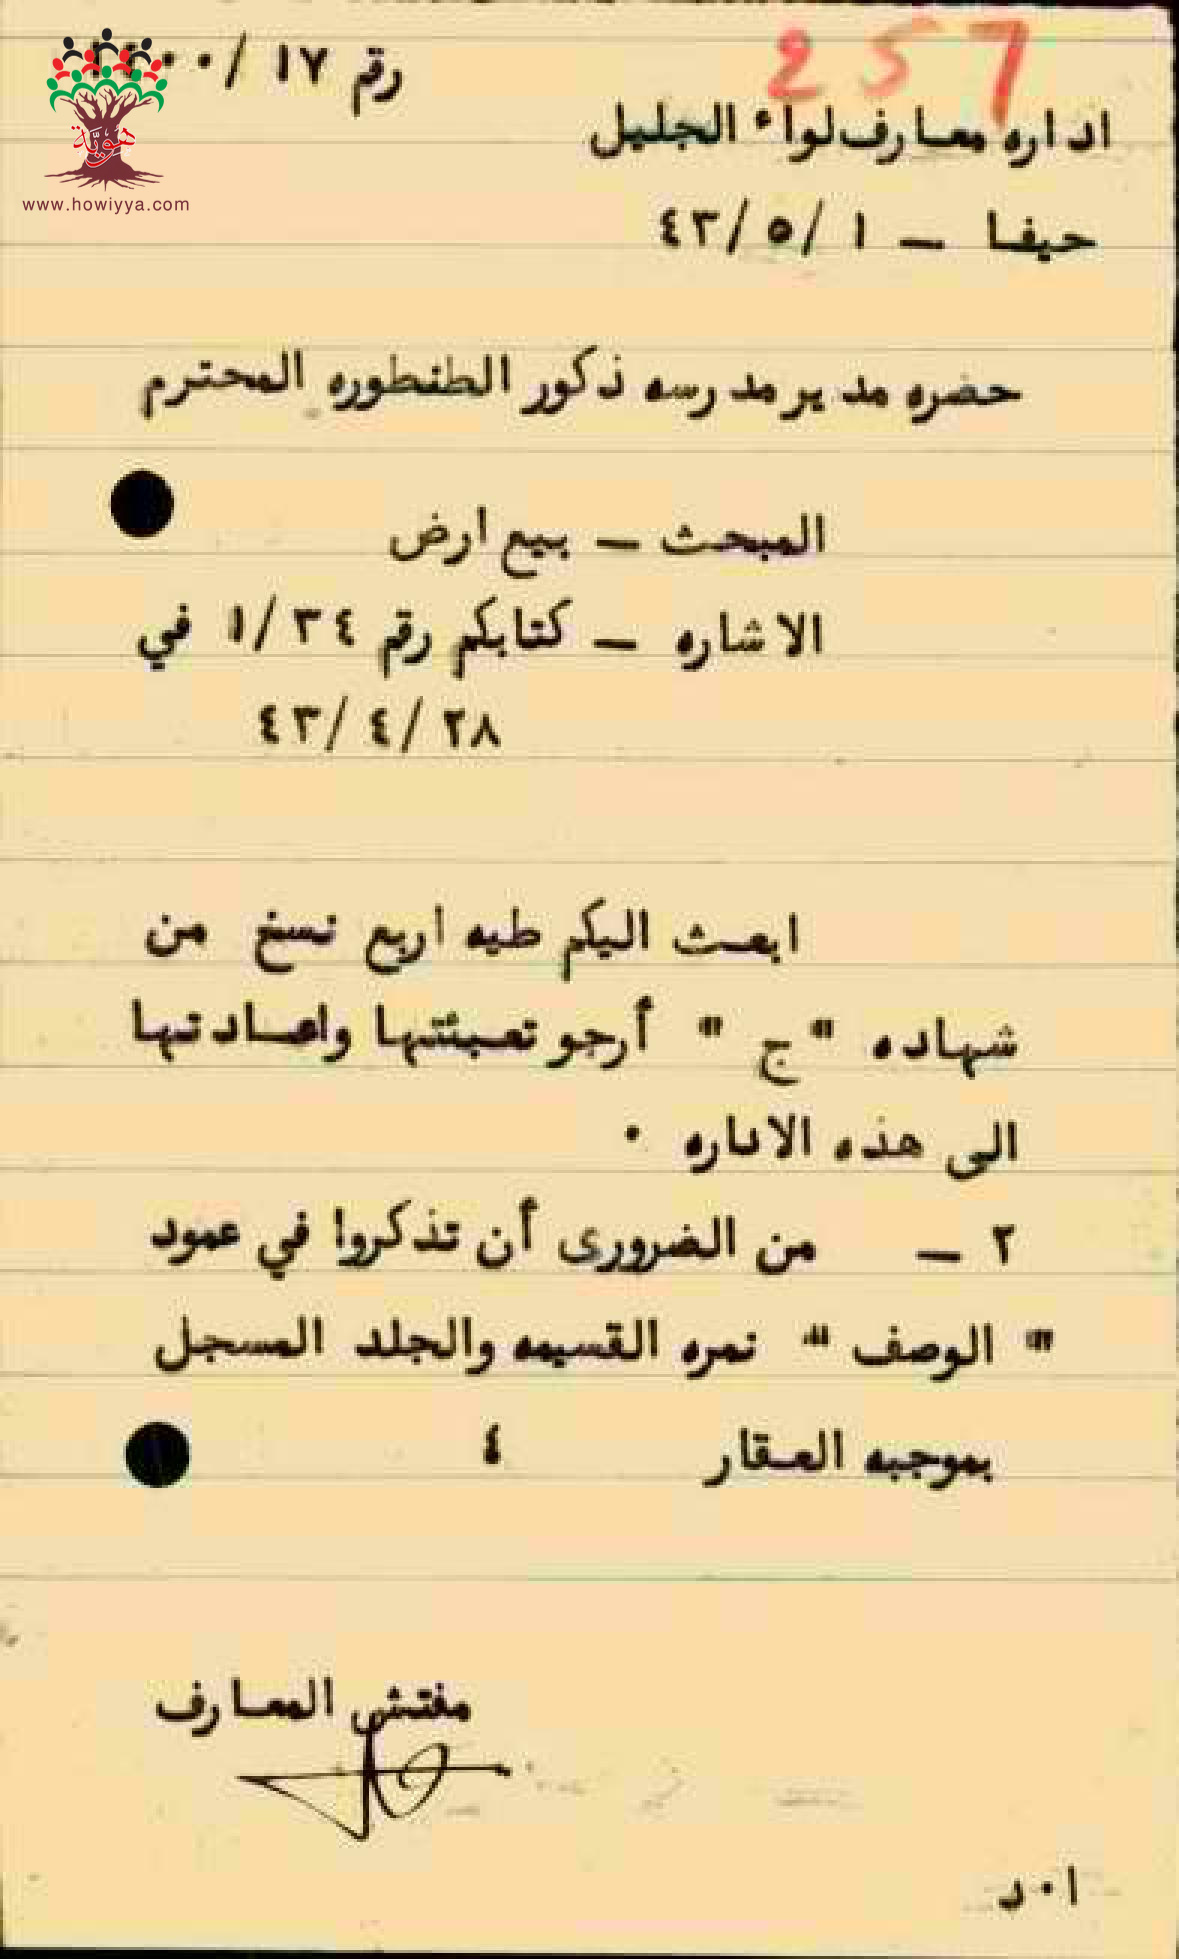 257
رقم ١٧ /
اداره معارف لواء الجليل
حيفا – ١ /٥ /٤٣
حضره مدير مدرسه ذكور الطنطوره المحترم
المبحث – بيع ارض
الاشاره – كتابكم رقم ١/٣٤ في
٤٣/٤/٢٨
ابعث اليكم طيه اربع نسخ من
شهاده "ج" أرجو تعبئتها واعادتها
الى هذه الاداره ٠
٢ – من الضرورى أن تذكروا في عمود
" الوصف " نمره القسيمه والجلد المسجل
بموجبه العقار ٤
مفتش المعارف
ا٠د
هوية
www.howiyya.com